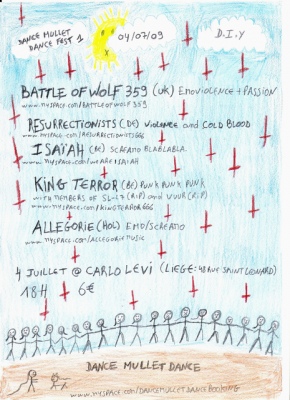 DANCE MULLET
DANCE FEST 1
04/07/09
D.I.Y
BATTLE OF WOLF 359 (UK) EMOVIOLENCE + PASSION
www.myspace.com/battleofwolf359
RESURRECTIONISTS (DE) VIOLENCE AND COLD BLOOD
www.myspace.com/resurrectionists666
ISAIAH (BE) SCREAMO BLABLABLA.
www.myspace.com/weareisaiah
KING TERROR (BE) PUNK PUNK PUNK
WITH MEMBERS OF SL-17 (R.I.P) AND VUUR (R.I.P)
www.myspace.com/kingterror666
ALLEGORIE (HOL) EMO/SCREAMO
www.myspace.com/allegoriemusic
4 JUILLET @ CARLO LEVI (LIEGE: 48 RUE SAINT LEONARD)
18H 6€
DANCE MULLET DANCE
www.myspace.com/dancemulletdancebooking